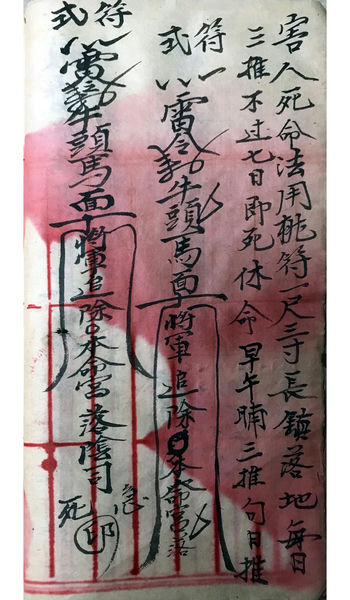 害人死命法用桃符一尺三寸長鎮落地每日
三推不过七日即死休命早午晡三推句日推
符式
雷令牛頭馬面十將軍追除本命宮落
符式
雷令牛頭馬面十將軍追除本命宮落陰司
急
死
印